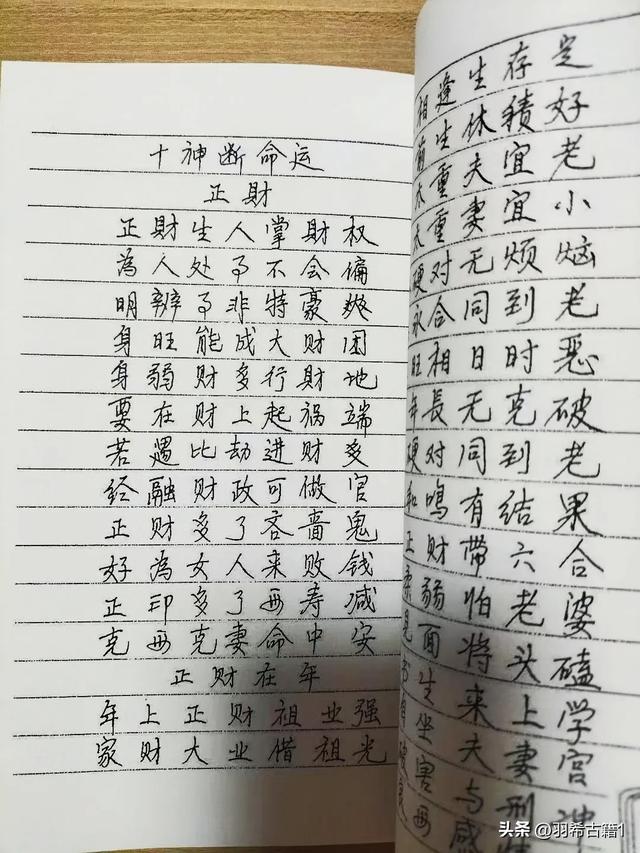 十神断命运
正財
正財生人掌財权
為人处事不会偏
明辨事非特豪爽
身旺能成大财团
身弱财多行財地
要在财上起祸端
若遇比劫进财多
经融财政可做官
正财多了吝啬鬼
好為女人来败钱
正印多了西寿减
克西克妻命中安
正财在年
年上正财祖业强
家财大业借祖光
相逢生存定
前生休積好
太重夫宜老
太重妻宜小
硬对无烦恼
永合同到老
旺相日时恶
年長无克破
硬对同到老
和鳴有结果
正财带六合
柔弱怕老婆
見面将头磕
生来上学
坐夫妻宫
害与刑冲
西感情
头条 @羽希古籍1